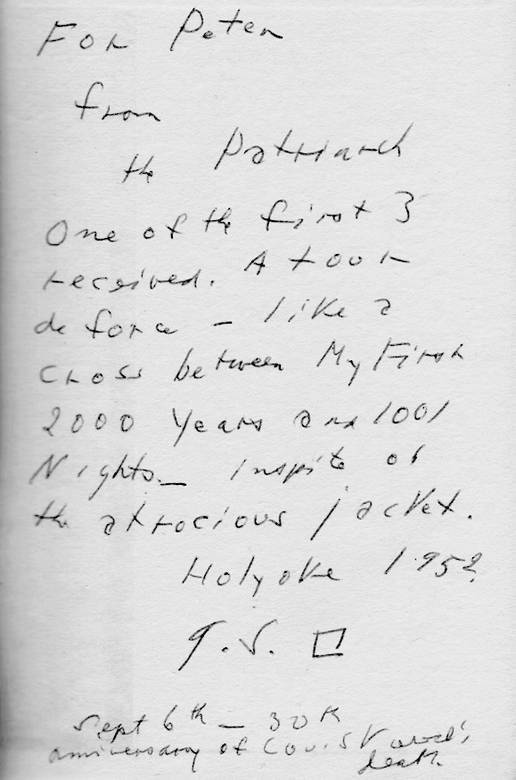 For Peter
from
the Patriarch
One of the first 3
received. A tour
de force – like a
cross between My First
2000 Years and 1001
Nights – Inspite of
the atrocious jacket.
Holyoke 1952
Sept 6th – 30th
anniversary of
death